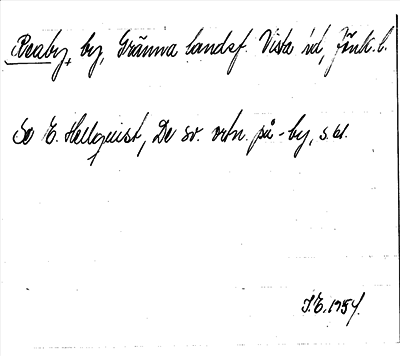 Reaby, by, Gränna landsf. Vista hd, Jönk. l.
Se E. Hellquist, De sv. ortn. på -by, s. 61.
J.E. 1954.